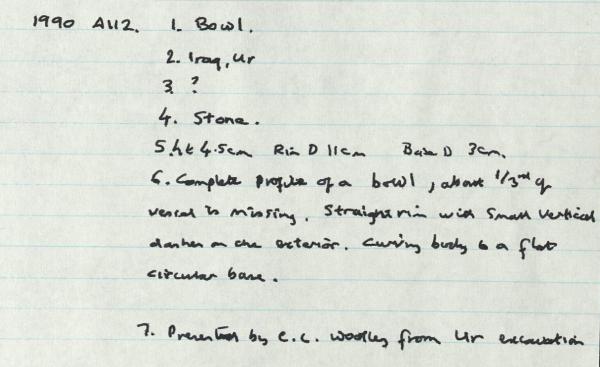 1990 A112. 1. Bowl.
2. Iraq, Ur
3. ?
4. Stone.
5. ht 4.5cm Rim D 11cm Base D 3cm.
6. Complete profile of a bowl, about 1/3rd of
vessel is missing. Straight rim with small vertical
dashes on the exterior. Curving body to a flat
circular base.
7. Presented by C.L. Woolley from Ur excavation